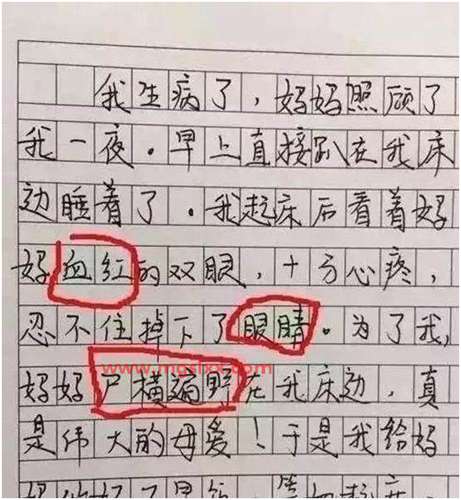 我生病了，妈妈照顾了
我一夜．早上直接趴在我床
边睡着了．我起床后看着妈
妈血红的双眼，十分心疼，
忍不住掉下了眼睛。为了我，
妈妈尸横遍野在我床边，真
是伟大的母爱！于是我给妈